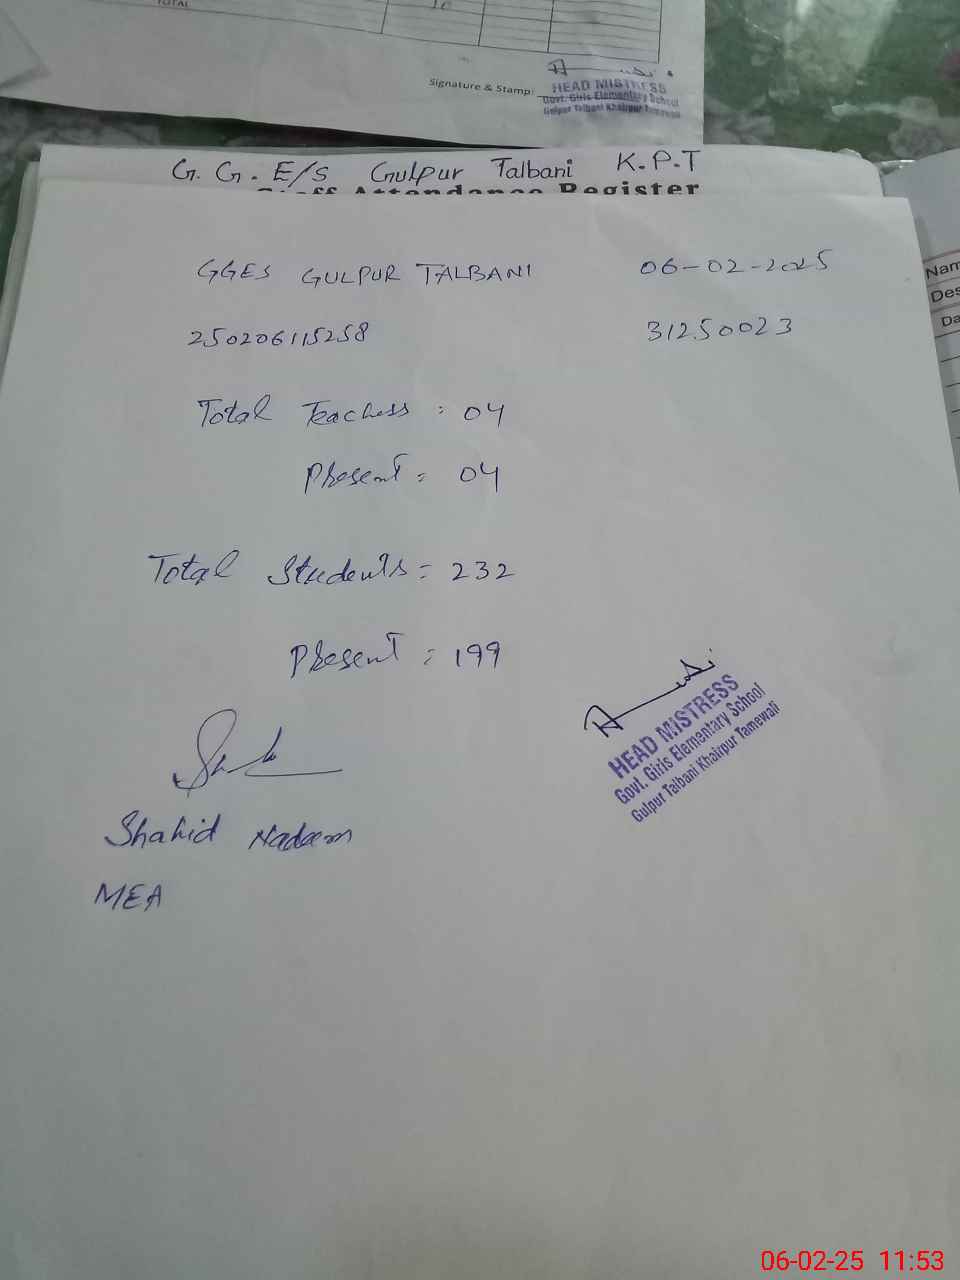 TOTAL
Signature & Stamp:
HEAD MISTRESS
Govt. Girls Elementary School
Gulpur Talbani Khairpur Tamewali
G. G. E/S Gulpur Talbani K.P.T
Staff Attendance Register
GGES GULPUR TALBANI 06-02-2025
250206115258 31250023
Total Teachers : 04
Present : 04
Total Students = 232
Present : 199
HEAD MISTRESS
Govt. Girls Elementary School
Gulpur Talbani Khairpur Tamewali
Shahid Nadeem
MEA
Nam
Des
Da
06-02-25 11:53